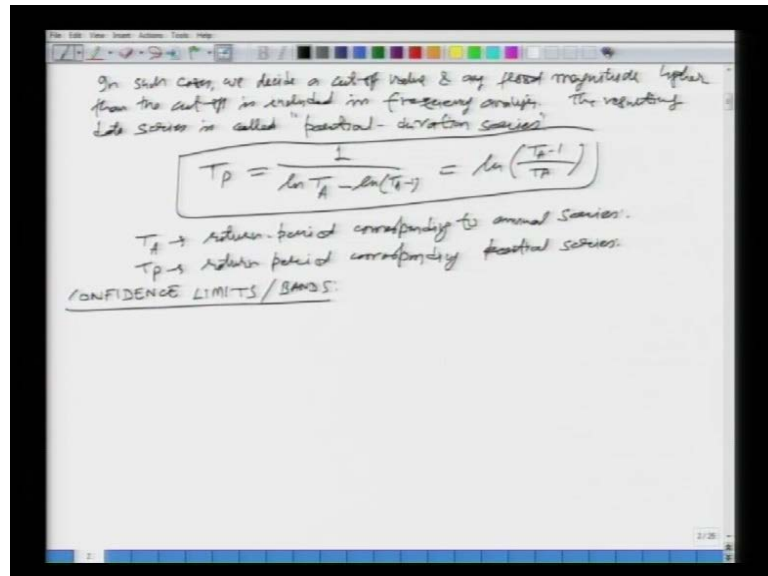 File Edit View Insert Actions Tools Help
In such cases, we decide a cut-off value & any flood magnitude higher
than the cut-off is included in frequency analysis. The resulting
data series is called "partial-duration series"
T_P = 1 / (ln T_A - ln(T_A-1)) = ln((T_A-1)/T_A)
T_A → return-period corresponding to annual series.
T_P → return period corresponding partial series.
CONFIDENCE LIMITS / BANDS:
2/25
2